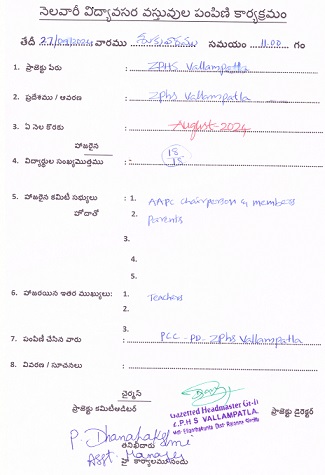 నెలవారీ విద్యావసర వస్తువుల పంపిణి కార్యక్రమం
తేదీ 27/09/2024 వారము సమయం 11.00 గం
1. ప్రాజెక్టు పేరు : ZPHS Vallampatla
2. ప్రదేశము / ఆవరణ : ZPHS Vallampatla
3. ఏ నెల కొరకు : August-2024
హాజరైన 18
4. విద్యార్థుల సంఖ్యమొత్తము : 15
5. హాజరైన కమిటి సభ్యులు : 1. AAPC chairperson & members
హోదాతో 2. Parents
3.
4.
5.
6. హాజరయిన ఇతర ముఖ్యులు: 1. Teachers
2.
3.
7. పంపిణి చేసిన వారు : PCC - PD - ZPHS Vallampatla
8. వివరణ / సూచనలు :
ప్రాజెక్టు కమిటిఆడిటర్ Gazetted Headmaster Gr-II ప్రాజెక్టు డైరెక్టర్
Z.P.H.S VALLAMPATLA
P. Dhanalakshmi
Asst. Manager